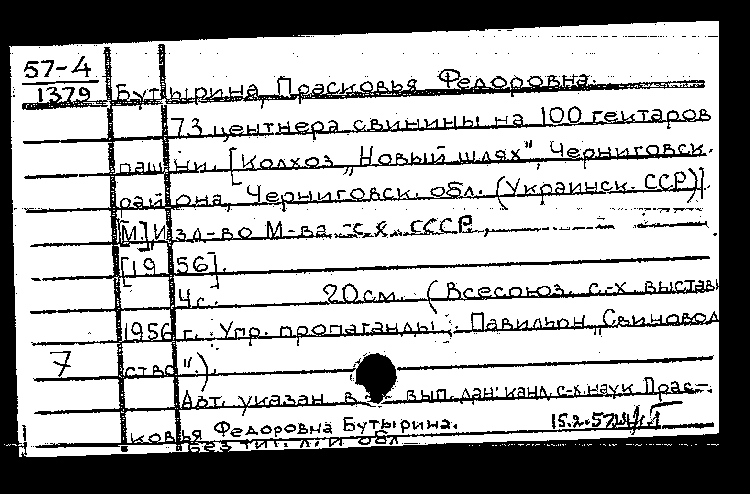 57-4
1379
Бутырина, Прасковья Федоровна.
73 центнера свинины на 100 гектаров
пашни. [Колхоз „Новый шлях", Черниговск.
района, Черниговск. обл. (Украинск. ССР)].
[М], Изд-во М-ва с.х. СССР,
[1956].
4с. 20см. (Всесоюз. с-х. выстав
1956 г. Упр. пропаганды. Павильон „Свиновод
7 ство").
Авт. указан в вып. дан: канд. с-х. наук Прас-
ковья Федоровна Бутырина. 15.2.57
Без тит. л. и обл